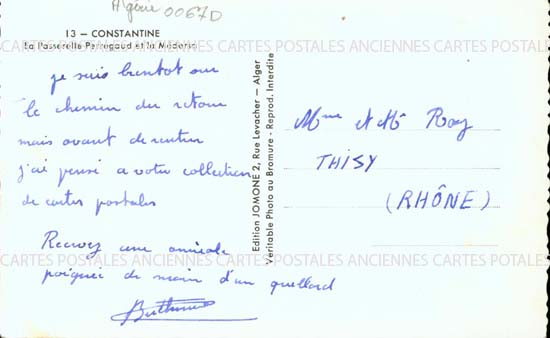 Algérie 0067D
13 — CONSTANTINE
La Passerelle Perregaud et la Médersa
CARTES POSTALES ANCIENNES CARTES POSTALES ANCIENNES CARTES POSTALES
je suis bientot sur
le chemin du retour
mais avant de rentrer
j'ai pensé a votre collection
de cartes postales
Recevez une amicale
poignée de main d'un
Edition JOMONE 2, Rue Levacher — Alger
Véritable Photo au Bromure - Reprod. Interdite
Mme et Mr Roy
THISY
(RHÔNE)
CARTES POSTALES ANCIENNES CARTES POSTALES ANCIENNES CARTES POSTALES